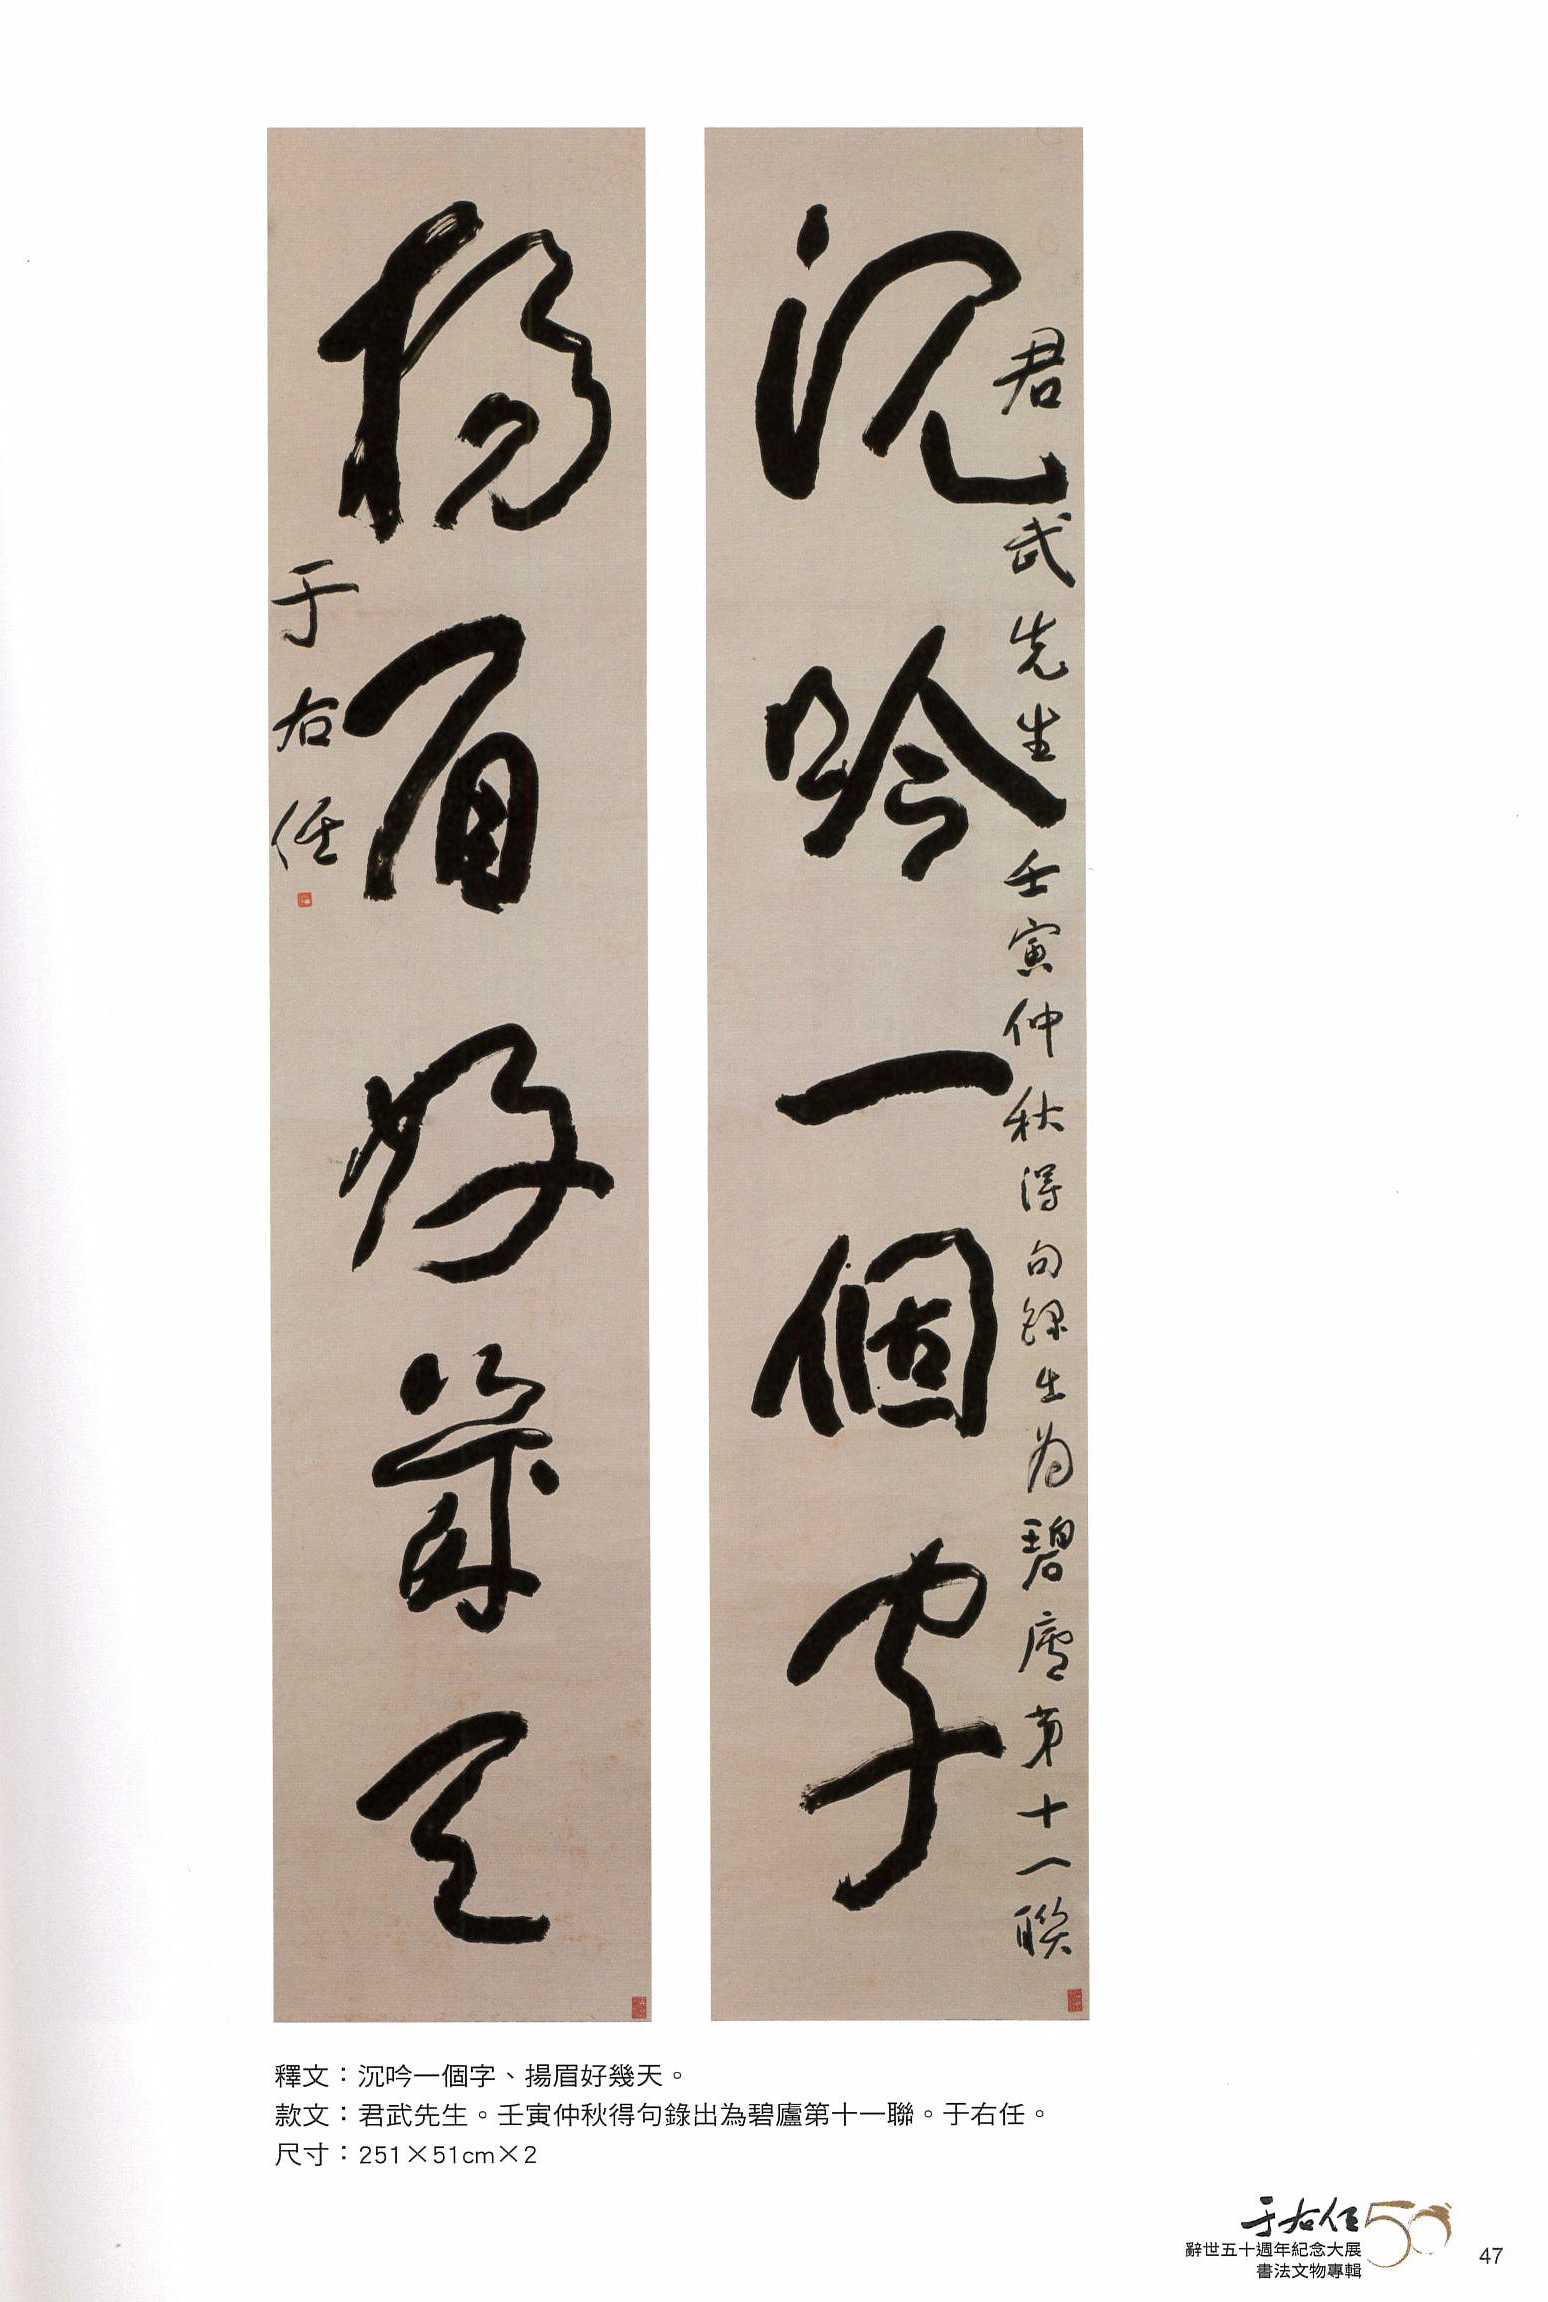 沉吟一個字
君武先生壬寅仲秋得句錄出為碧廬第十一聯
揚眉好幾天
于右任
釋文：沉吟一個字、揚眉好幾天。
款文：君武先生。壬寅仲秋得句錄出為碧廬第十一聯。于右任。
尺寸：251×51cm×2
于右任50
辭世五十週年紀念大展
書法文物專輯
47